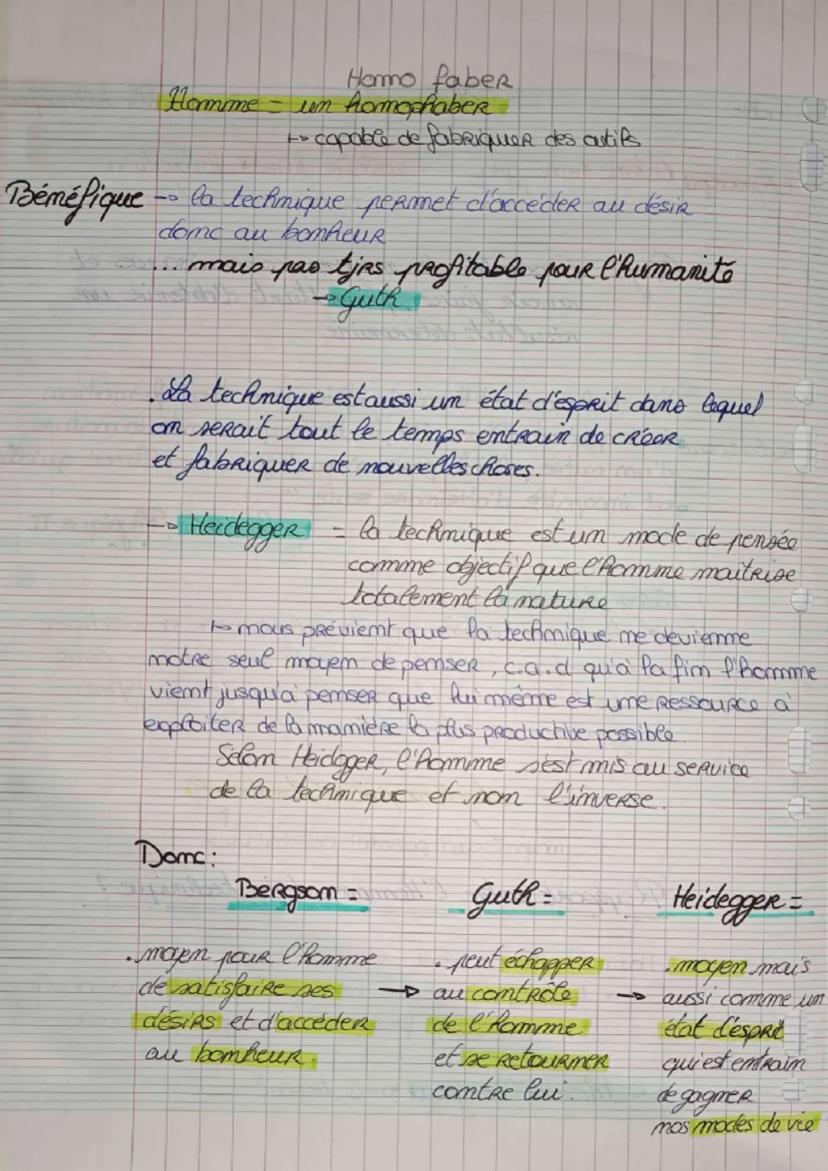 Homo faber
Homme = un homophaber
↳ capable de fabriquer des outils
Bénéfique → la technique permet d'accéder au désir
donc au bonheur
... mais pas tjrs profitable pour l'humanité
→ Guth
. La technique est aussi un état d'esprit dans lequel
on serait tout le temps entrain de créer
et fabriquer de nouvelles choses.
→ Heidegger = la technique est un mode de pensée
comme objectif que l'homme maitrise
totalement la nature
↳ mais prévient que la technique ne devienne
notre seul moyen de penser, c.a.d qu'à la fin l'homme
vient jusqu'à penser que lui même est une ressource à
exploiter de la manière la plus productive possible
Selon Heidgger, l'homme s'est mis au service
de la technique et non l'inverse.
Donc:
Bergson = Guth = Heidegger =
. moyen pour l'homme . peut échapper . moyen mais
de satisfaire ses → au contrôle → aussi comme un
désirs et d'accéder de l'homme état d'esprit
au bonheur. et se retourner qui est entrain
contre lui. de gagner
nos modes de vie